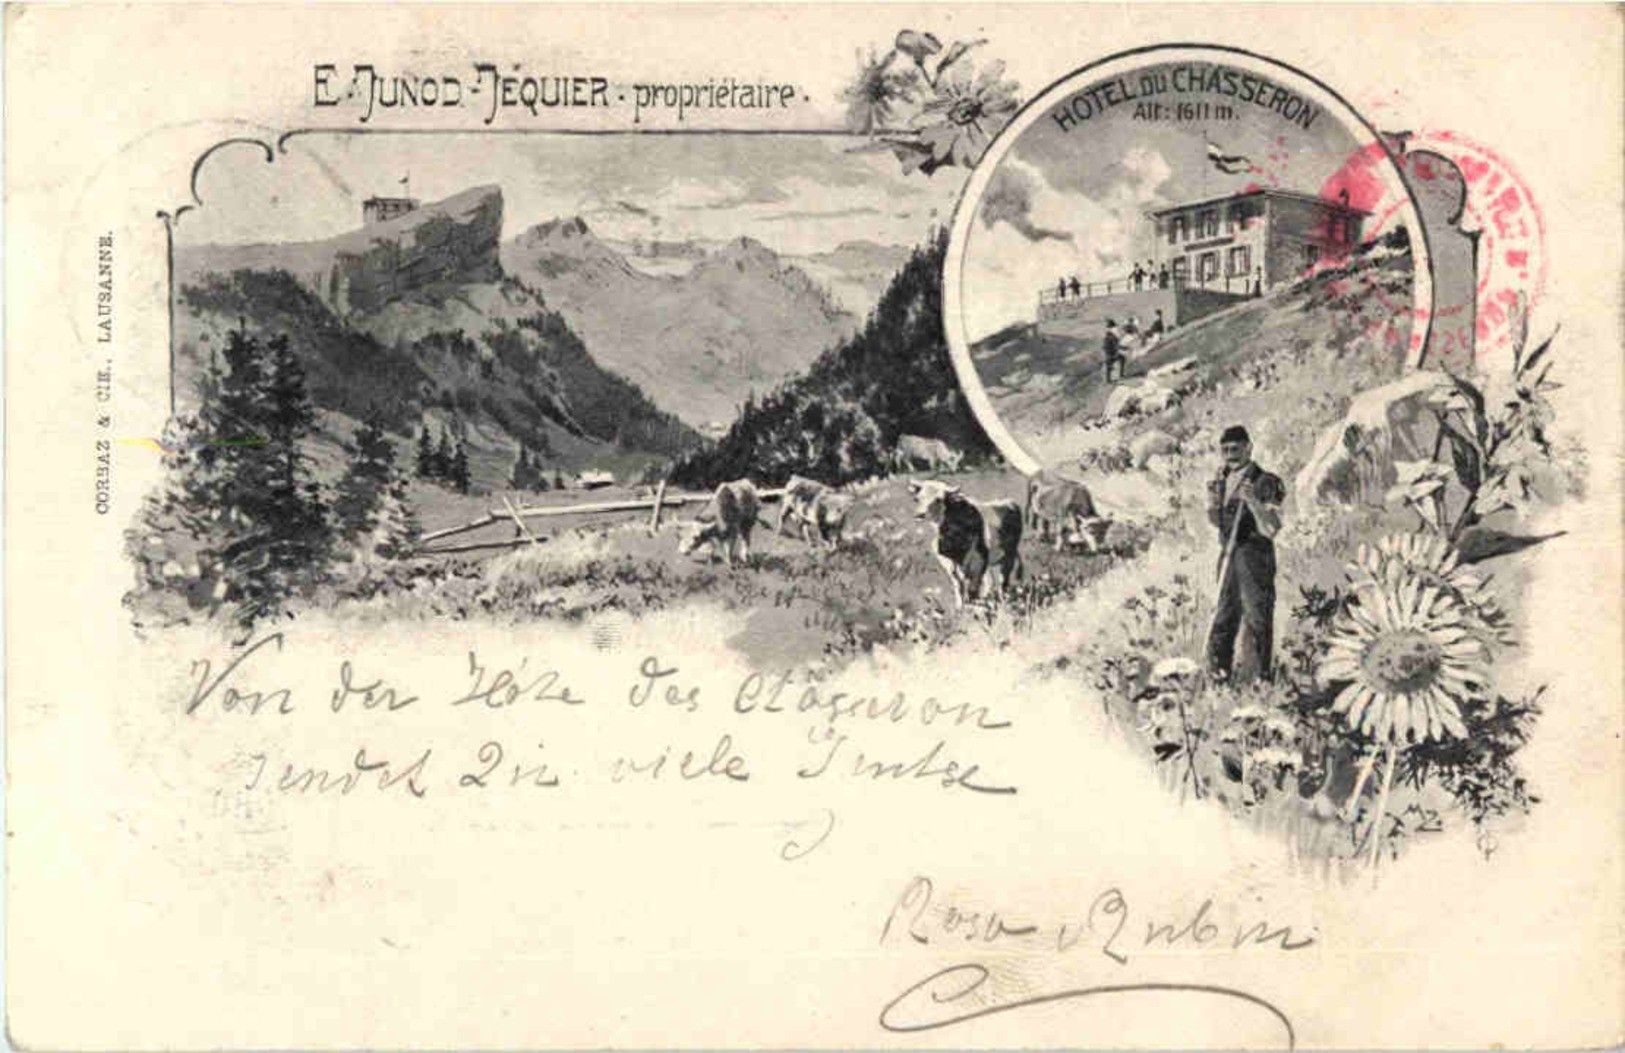 E. JUNOD-JÉQUIER · propriétaire ·
HÔTEL DU CHASSERON
Alt: 1611 m.
CORBAZ & CIE., LAUSANNE.
Von der Höhe des Chasseron
sendet Dir viele
Rosa Rubin
MZ